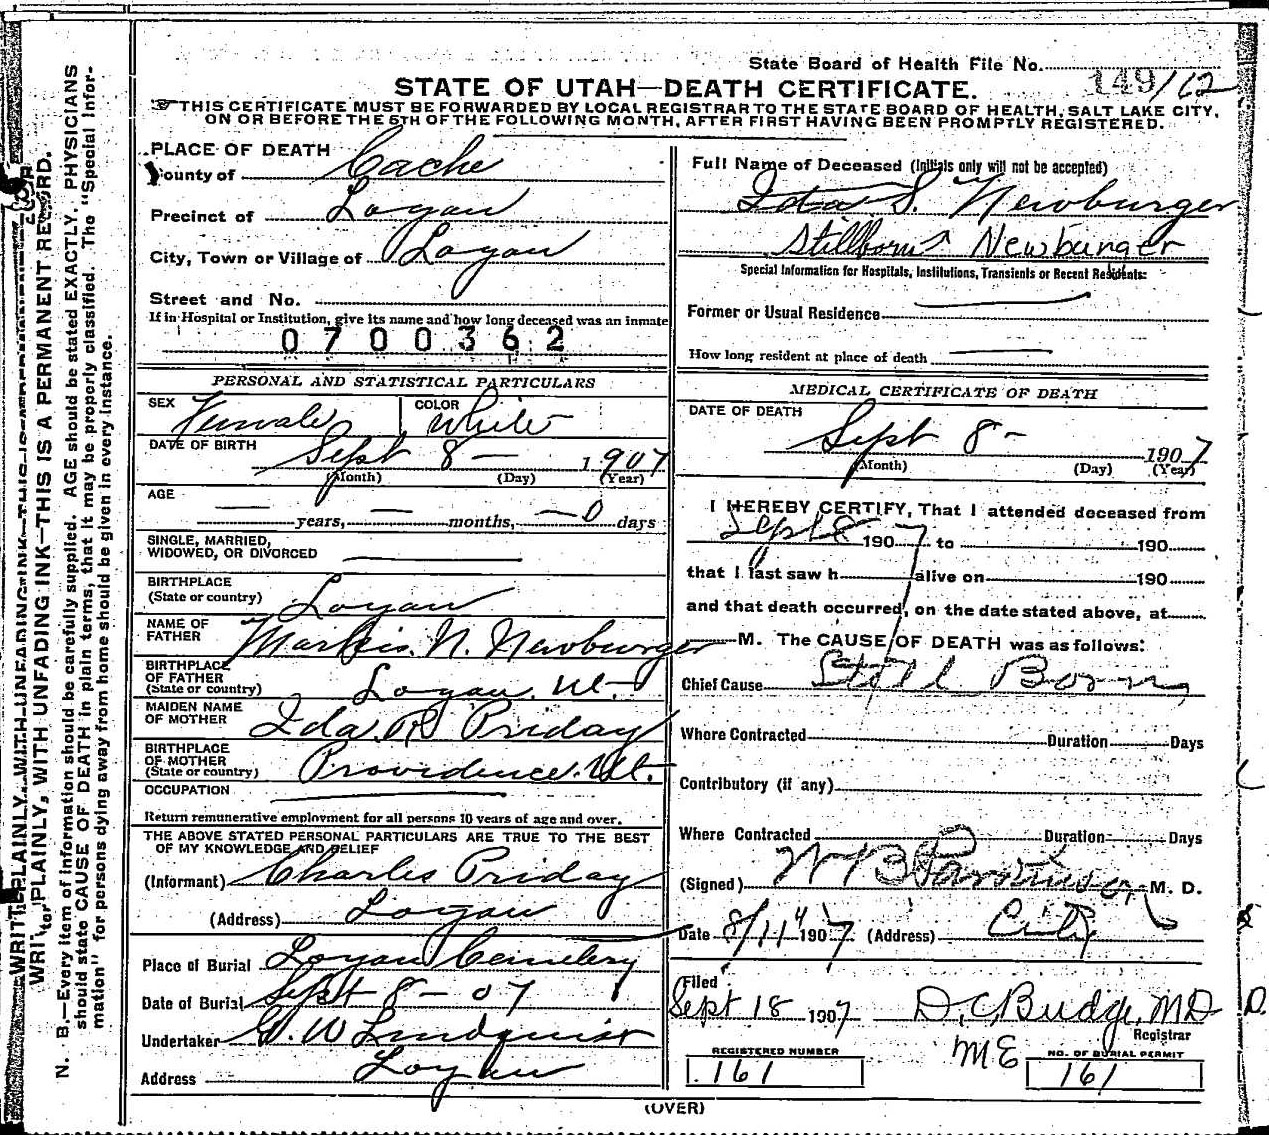 State Board of Health File No. 149/12
STATE OF UTAH—DEATH CERTIFICATE.
THIS CERTIFICATE MUST BE FORWARDED BY LOCAL REGISTRAR TO THE STATE BOARD OF HEALTH, SALT LAKE CITY,
ON OR BEFORE THE 5TH OF THE FOLLOWING MONTH, AFTER FIRST HAVING BEEN PROMPTLY REGISTERED.
PLACE OF DEATH
County of Cache
Precinct of Logan
City, Town or Village of Logan
Street and No.
If in Hospital or Institution, give its name and how long deceased was an inmate
0700362
PERSONAL AND STATISTICAL PARTICULARS
SEX Female COLOR White
DATE OF BIRTH Sept 8— 1907
(Month) (Day) (Year)
AGE
— years, — months, — 0 days
SINGLE, MARRIED,
WIDOWED, OR DIVORCED
BIRTHPLACE
(State or country) Logan
NAME OF
FATHER N. Newburger
BIRTHPLACE
OF FATHER
(State or country) Logan. Ut.
MAIDEN NAME
OF MOTHER Ida. R Priday
BIRTHPLACE
OF MOTHER
(State or country) Providence. Ut.
OCCUPATION
Return remunerative employment for all persons 10 years of age and over.
THE ABOVE STATED PERSONAL PARTICULARS ARE TRUE TO THE BEST
OF MY KNOWLEDGE AND BELIEF
(Informant) Charles Priday
(Address) Logan
Place of Burial Logan Cemetery
Date of Burial Sept 8 - 07
Undertaker W Lindquist
Address Logan
Full Name of Deceased (Initials only will not be accepted)
Ida S. Newburger
Stillborn Newburger
Special Information for Hospitals, Institutions, Transients or Recent Residents:
Former or Usual Residence
How long resident at place of death
MEDICAL CERTIFICATE OF DEATH
DATE OF DEATH
Sept 8 - 1907
(Month) (Day) (Year)
I HEREBY CERTIFY, That I attended deceased from
Sept 8 1907 to 190
that I last saw h alive on 190
and that death occurred, on the date stated above, at
M. The CAUSE OF DEATH was as follows:
Chief Cause Still Born
Where Contracted Duration Days
Contributory (if any)
Where Contracted Duration Days
(Signed) W B Parkinson M. D.
Date 1907 (Address) City
Filed
Sept 18 1907 D. C. Budge, M D
Registrar
M E
REGISTERED NUMBER
161
NO. OF BURIAL PERMIT
161
(OVER)
WRITE PLAINLY, WITH UNFADING INK—THIS IS A PERMANENT RECORD.
N. B.—Every item of information should be carefully supplied. AGE should be stated EXACTLY. PHYSICIANS
should state CAUSE OF DEATH in plain terms, that it may be properly classified. The "Special Infor-
mation" for persons dying away from home should be given in every instance.